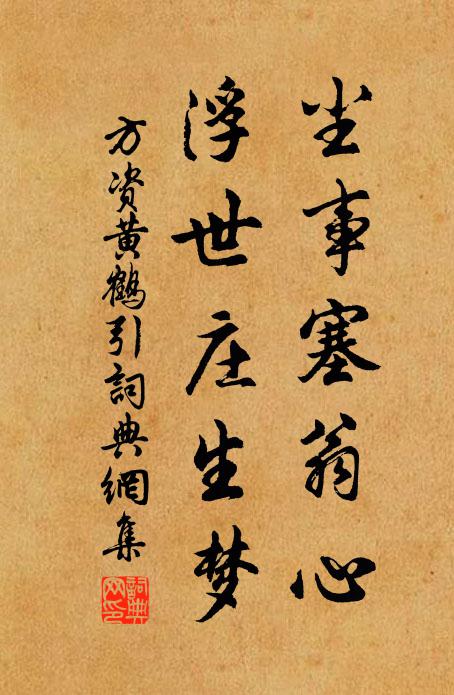 尘事塞翁心
浮世庄生梦
方资黄鹤引詞典網集
詞典网印